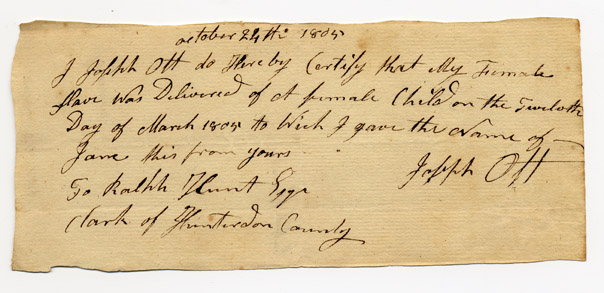 october 24th 1805
I Joseph Ott do Hereby Certify that My Female
slave was Delivered of A female Child on the Twelvth
Day of March 1805 to Wich I gave the Name of
Jane this from yours
Joseph Ott
To Ralph Hunt Esqr
Clark of Hunterdon County